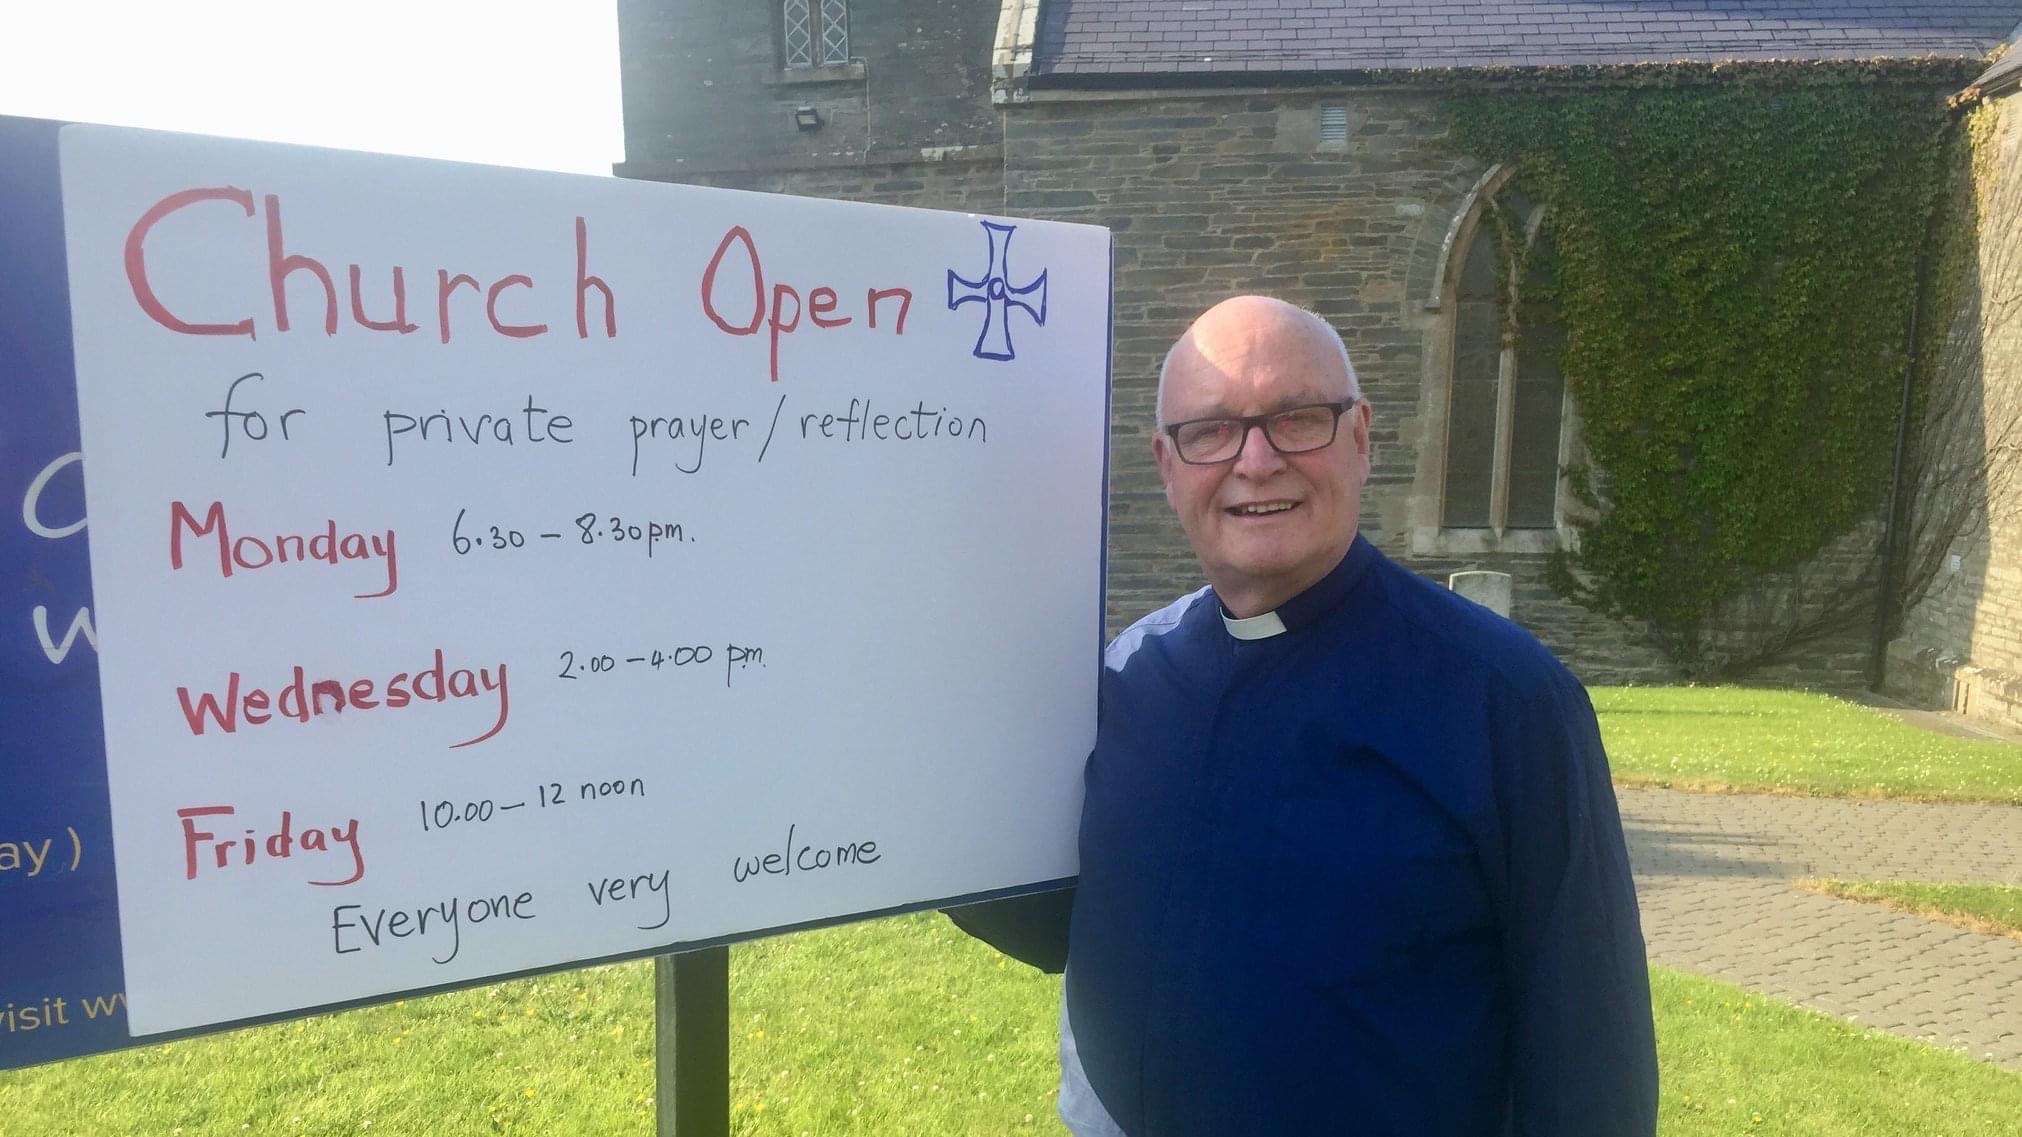 Church Open
for private prayer/reflection
Monday 6.30 – 8.30pm.
Wednesday 2.00 – 4.00 pm.
Friday 10.00 – 12 noon
Everyone very welcome
ay)
visit